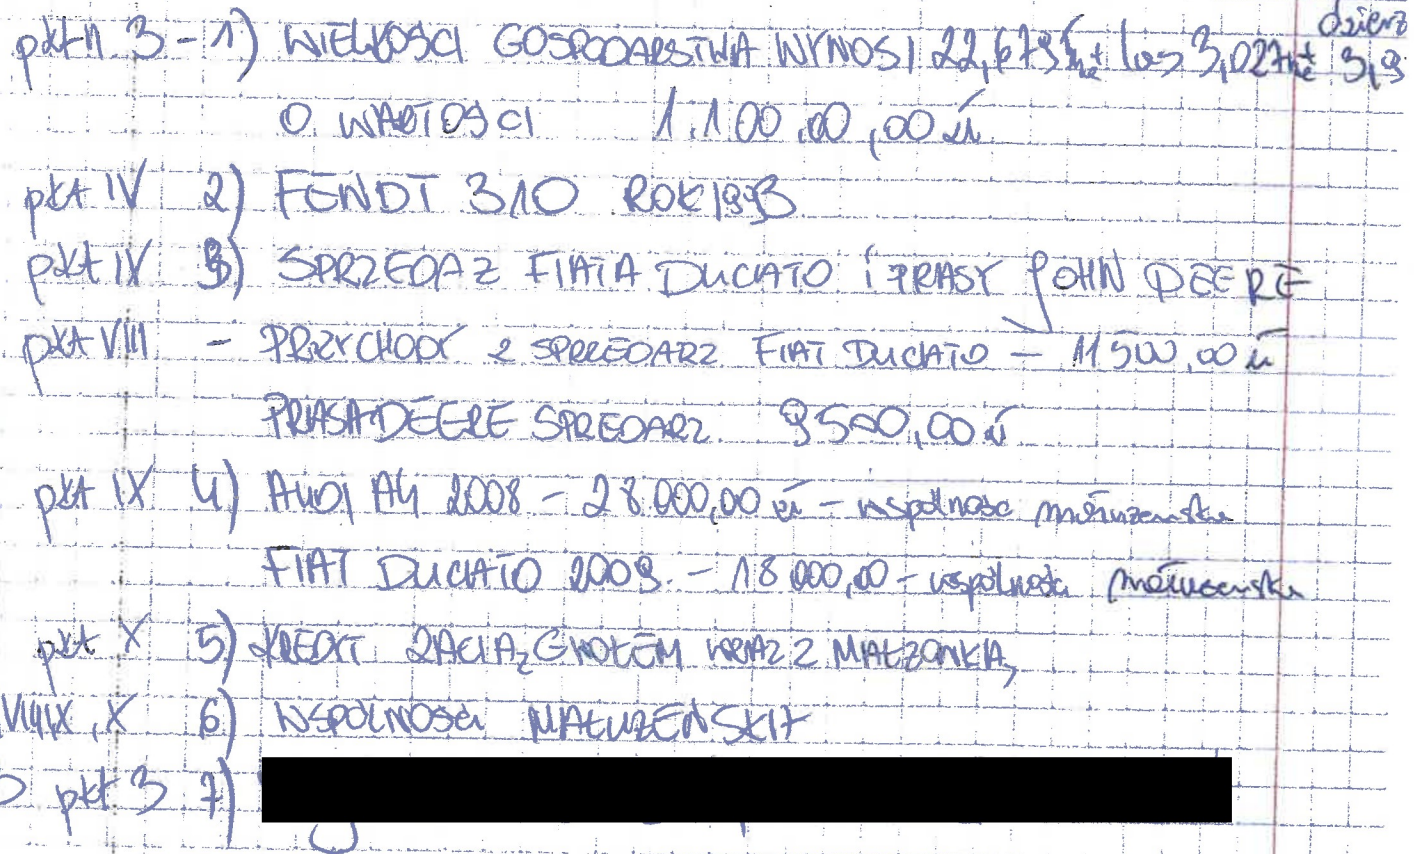 dzierż
pkt II 3 - 1) WIELKOŚCI GOSPODARSTWA WYNOSI 22,6795 ha + las 3,027 ha + 3,9
O WARTOŚCI 1.100.00,00 zł
pkt IV 2) FENDT 310 ROK 1993
pkt IX 3) SPRZEDAZ FIATA DUCATO i PRASY JOHN DEERE
pkt VIII - PRZYCHODY Z SPRZEDARZ FIAT DUCATO - 11500,00 zł
PRASA DEERE SPREDARZ 9500,00 zł
pkt IX 4) AUDI A4 2008 - 28.000,00 zł - wspólność małżeńska
FIAT DUCATO 2009. - 18 000,00 - wspólność małżeńska
pkt X 5) KREDYT ZACIĄGNOŁEM WRAZ Z MAŁŻONKĄ
VIII, IX, X 6) WSPÓLNOŚĆ MAŁŻEŃSKA
pkt 3 7)